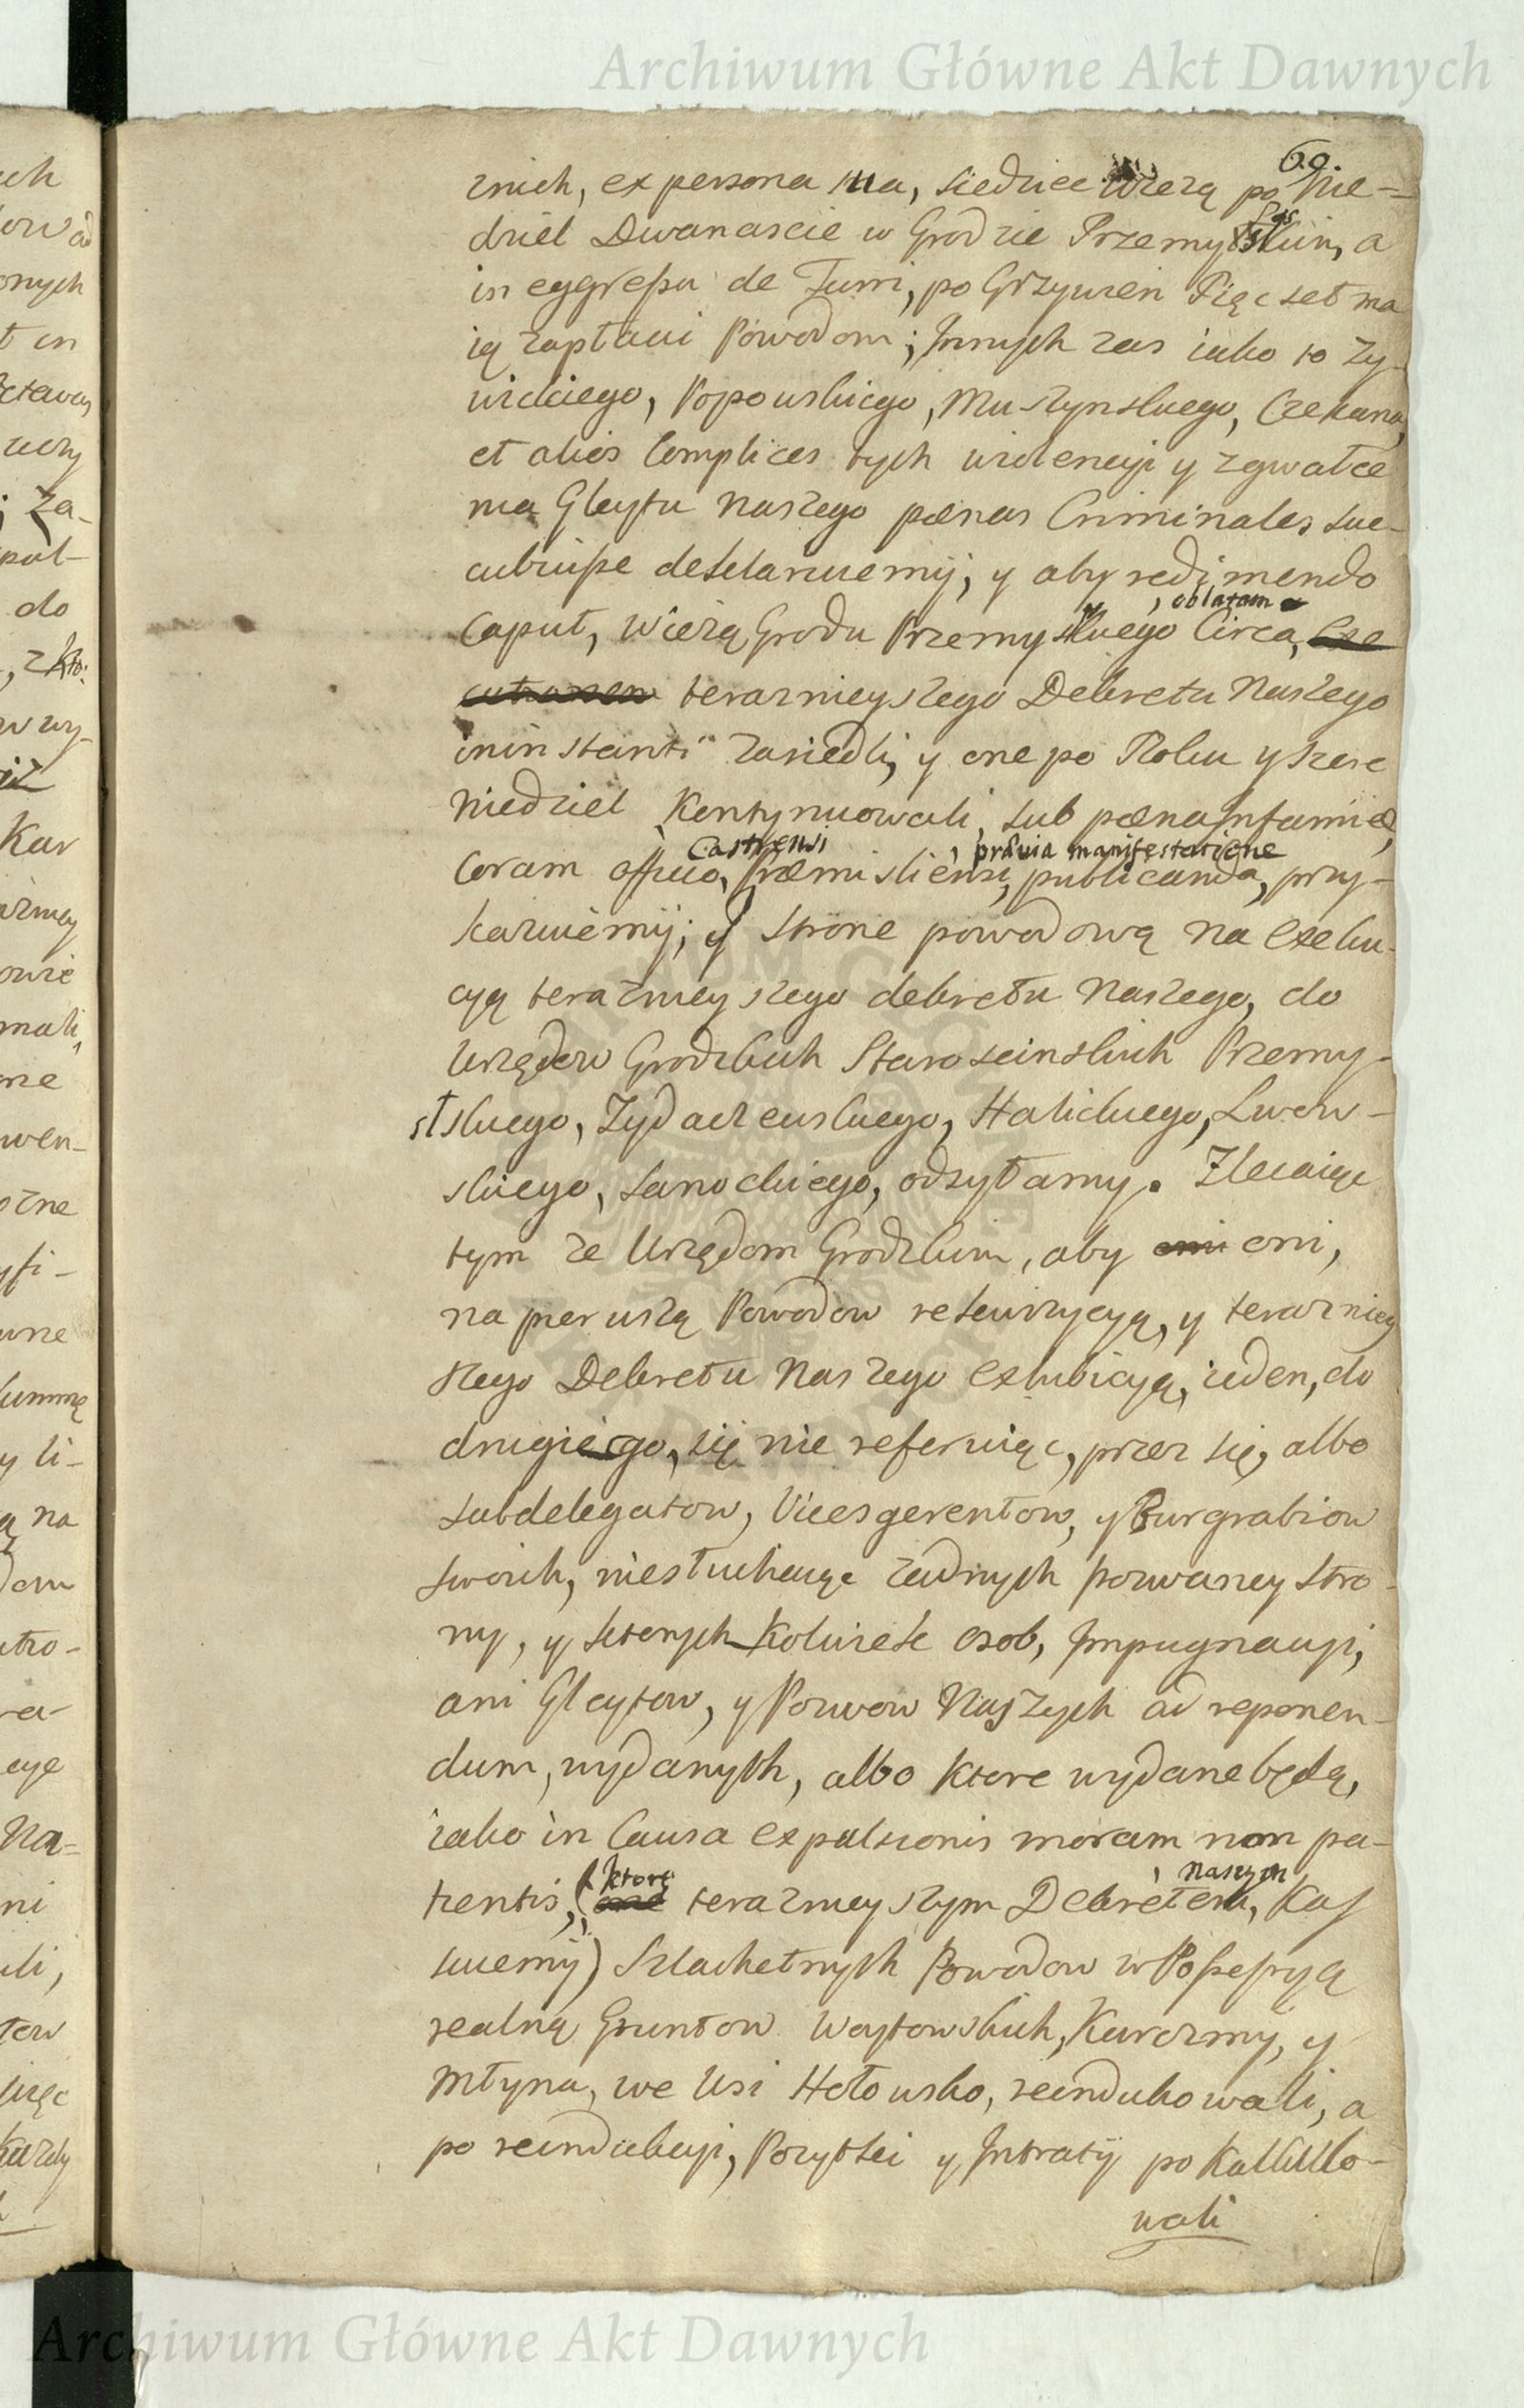 Archiwum Główne Akt Dawnych
69.
znich, ex persona sua, siedziec wiezą po Nie=
dziel Dwanascie w Grodzie Przemyslskim, a
in eggressu de Turri, po Grzywien Pięcset ma
ią zapłacić Powodom; Innych zas iako to Zy-
wickiego, Popowskiego, Muszynskiego, Czekana,
et alios Complices tych wiolencyi y zgwałce
nia Gleytu Naszego pœnas Criminales suc-
cubuisse deklaruiemy, y aby redimendo
, oblatam
Caput, Wieżą Grodu Przemyslkiego Circa, Exe
cutionem teraznieyszego Dekretu Naszego
ininstanti zasiedli, y one po Roku y szesc
Niedziel Kontynuowali, sub pœna Infamiæ,
Castrensi , prævia manifestatione
Coram officio, Præmisliensi, publicanda, przy-
kazuiemy; y strone powodową na Exeku-
cyą terazneyszego dekretu Naszego, do
Urzędow Grodzkich Staroscinskich Przemy-
slskiego, Zydaczewskiego, Halickiego, Lwow-
skiego, Sanockiego, odsyłamy. Zlecaiąc
tym ze Urzędom Grodzkim, aby oni oni,
na pierwszą Powodow rekwizycyą, y terazniey
szego Dekretu Naszego Exhibicyą, ieden, do
drugiego, się nie referuiąc, przez się, albo
Subdelegatow, Vicesgerentow, y Burgrabiow
swoich, niesłuchaiąc żadnych pozwaney stro-
ny, y ktorych Kolwiek osob, Impugnacyi,
ani Gleytow, y Pozwow Naszych ad reponen-
dum, wydanych, albo ktore wydane będą,
iako in Causa expulsionis moram non pa-
ktore , naszym
tientis, (one terazneyszym Dekretem, Kas
suiemy) Szlachetnych Powodow w Possessyą
realną Gruntow Woytowskich, Karczmy, y
Młyna, we Wsi Hołowsko, reindukowali, a
po reindukcyi, Pozytki y Intraty po Kalkulo-
wali
Archiwum Główne Akt Dawnych